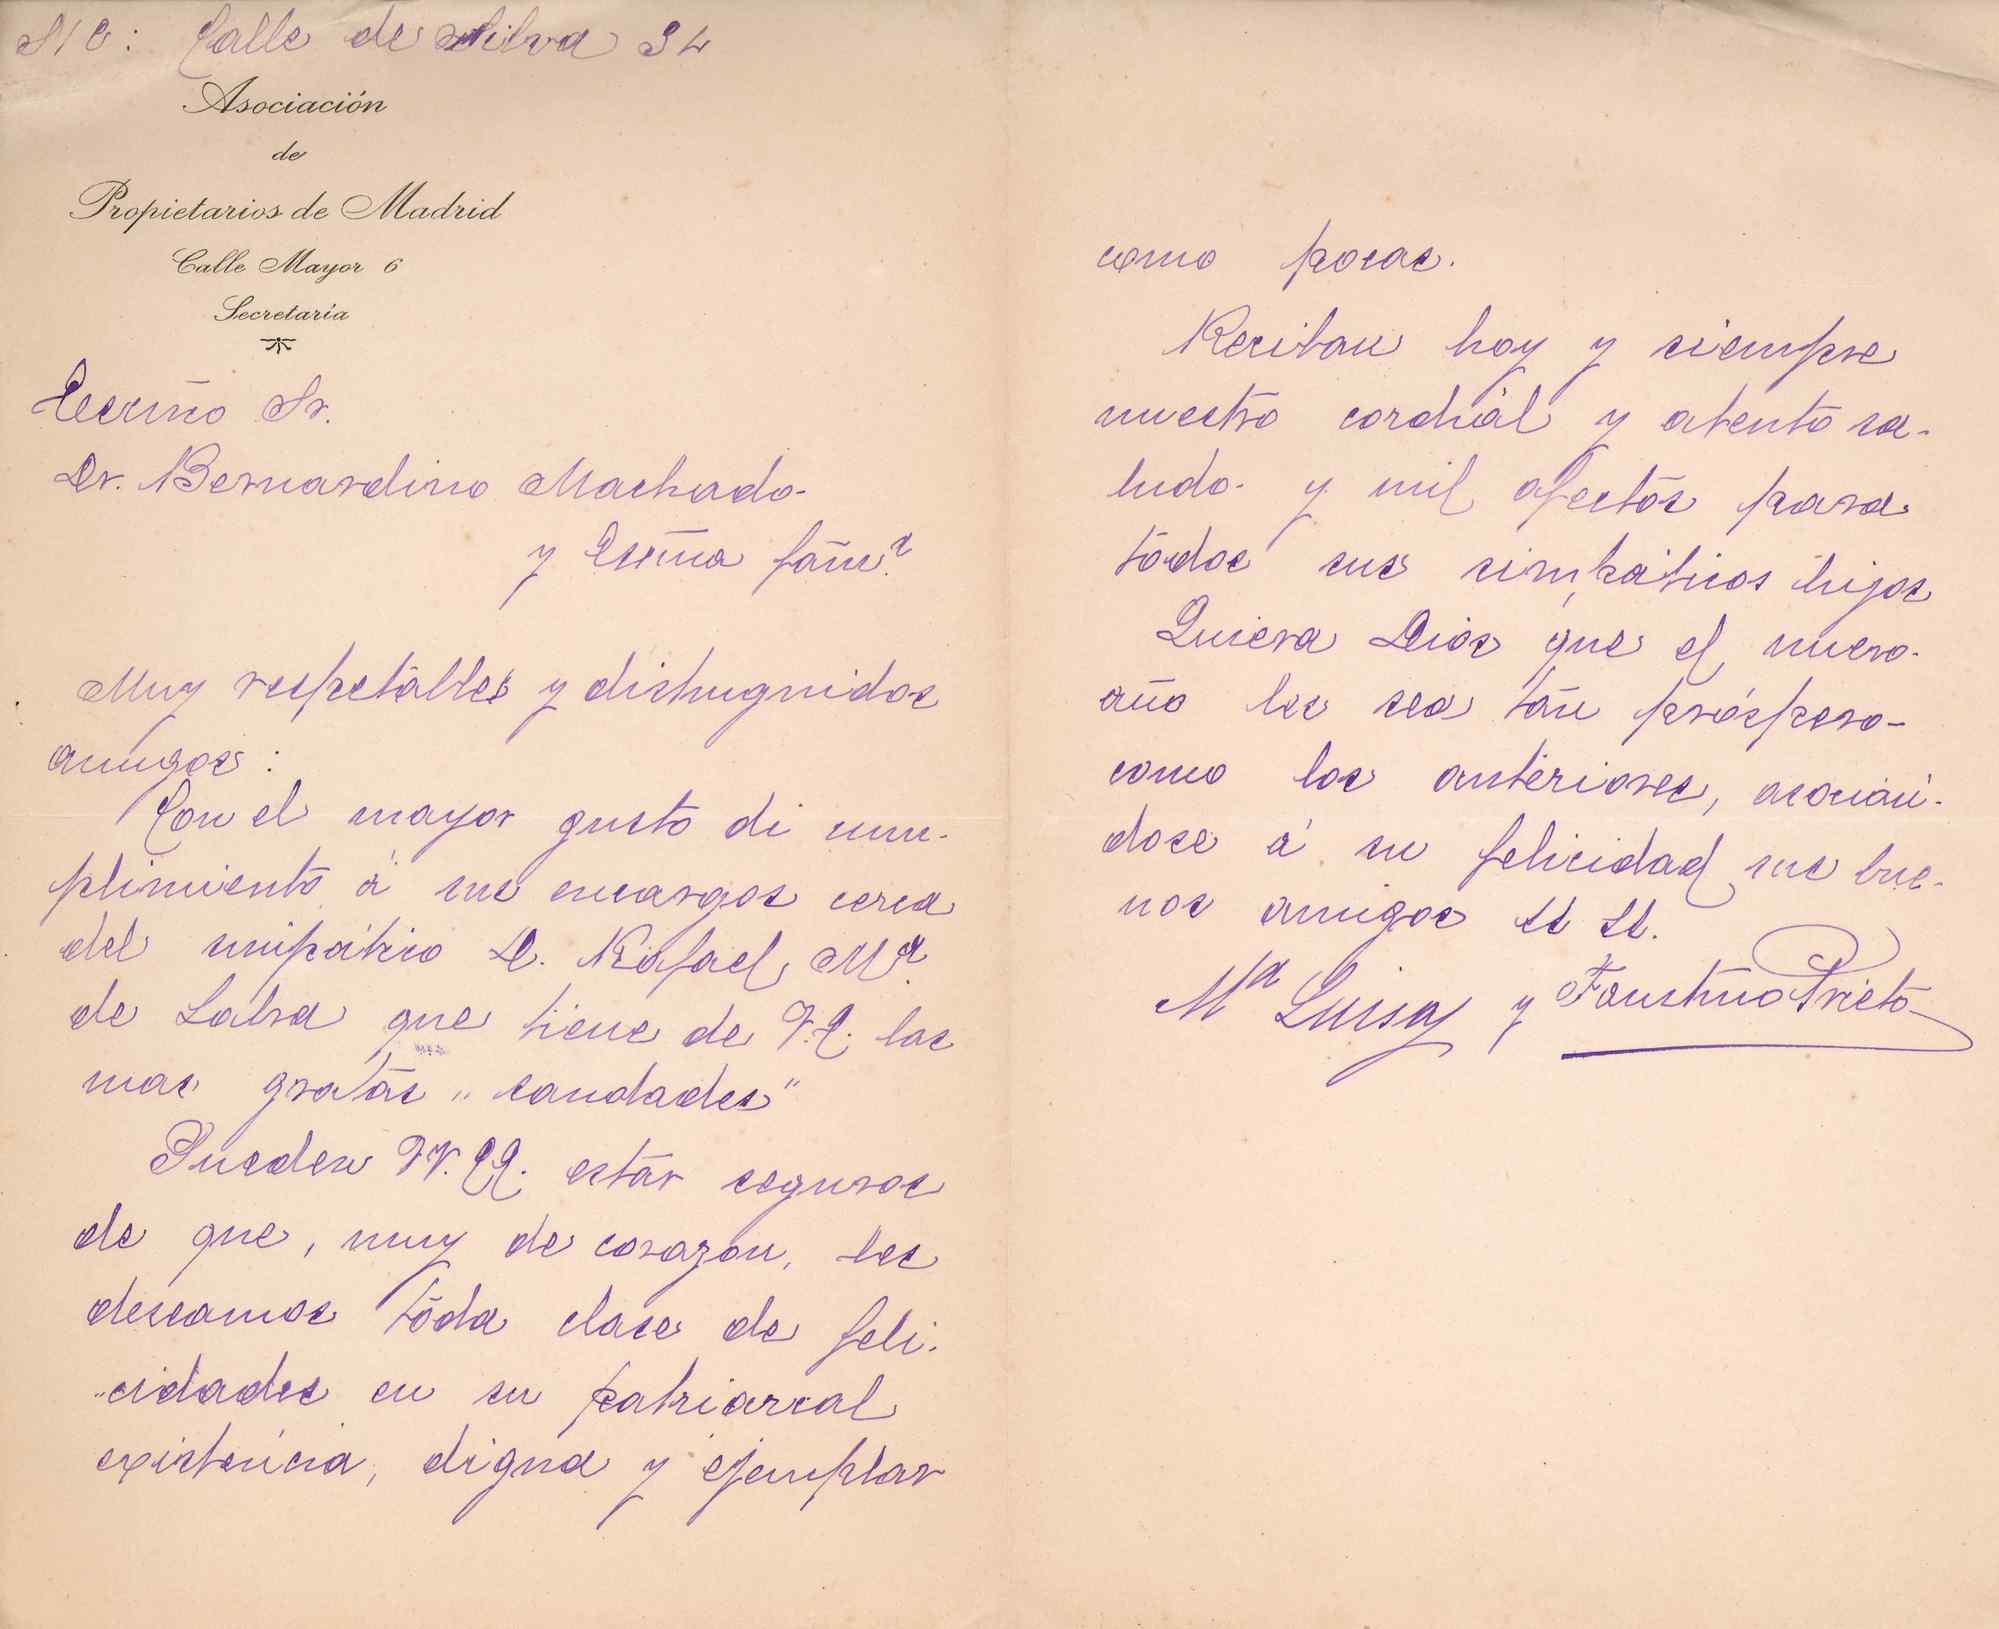 S/C: Calle de Silva 34
Asociación
de
Propietarios de Madrid
Calle Mayor 6
Secretaría
Excmo Sr.
Dr. Bernardino Machado
y Exma fam.ª
Muy respetables y distinguidos
amigos:
Con el mayor gusto di cum-
plimiento á sus encargos cerca
del simpático D. Rafael Mª
de Labra que tiene de V.E. las
mas gratas "saudades"
Pueden VV.EE. estar seguros
de que, muy de corazon, les
deseamos toda clase de feli-
cidades en su patriarcal
existencia, digna y ejemplar
como pocas.
Reciban hoy y siempre
nuestro cordial y atento sa-
ludo y mil afectos para
todos sus simpáticos hijos
Quiera Dios que el nuevo
año les sea tan próspero
como los anteriores, asocian-
dose á su felicidad sus bue-
nos amigos SS SS.
Mª Luisa y Faustino Prieto